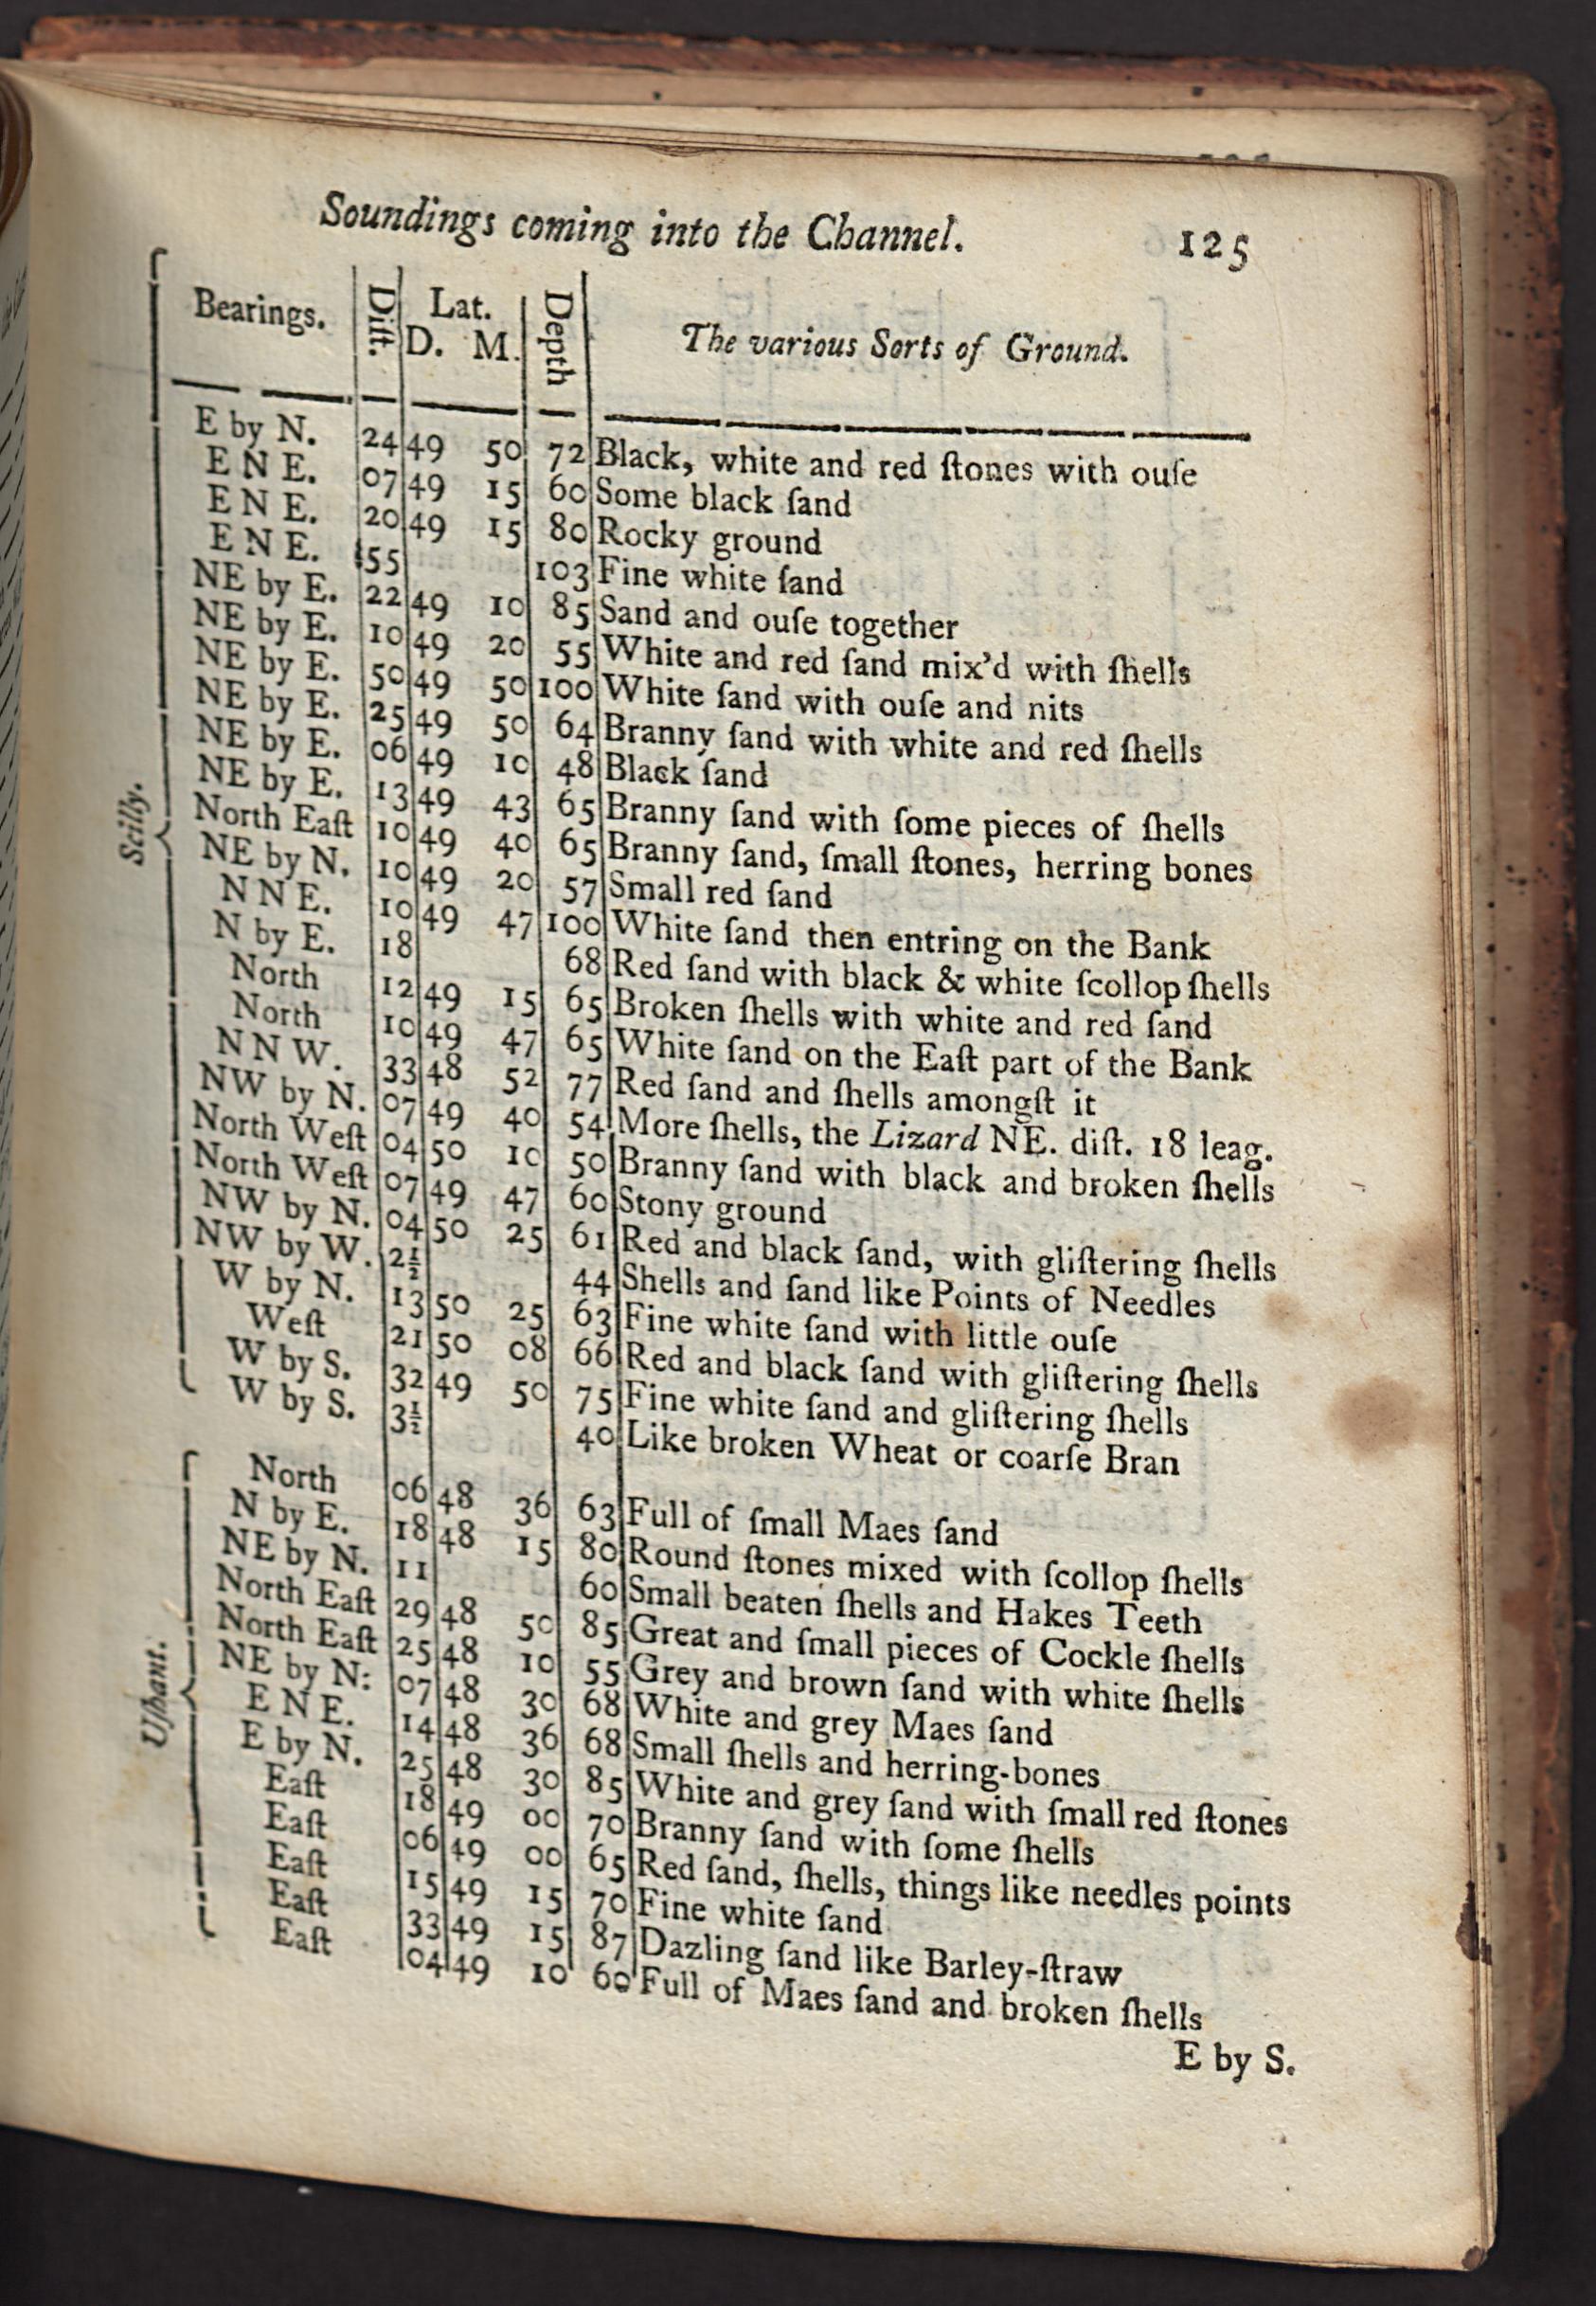 Soundings coming into the Channel. 125
Bearings. Diſt. Lat. D. M. Depth The various Sorts of Ground.
Scilly.
E by N. 24 49 50 72 Black, white and red ſtones with ouſe
E N E. 07 49 15 60 Some black ſand
E N E. 20 49 15 80 Rocky ground
E N E. 55 103 Fine white ſand
NE by E. 22 49 10 85 Sand and ouſe together
NE by E. 10 49 20 55 White and red ſand mix'd with ſhells
NE by E. 50 49 50 100 White ſand with ouſe and nits
NE by E. 25 49 50 64 Branny ſand with white and red ſhells
NE by E. 06 49 10 48 Black ſand
NE by E. 13 49 43 65 Branny ſand with ſome pieces of ſhells
North Eaſt 10 49 40 65 Branny ſand, ſmall ſtones, herring bones
NE by N. 10 49 20 57 Small red ſand
N N E. 10 49 47 100 White ſand then entring on the Bank
N by E. 18 68 Red ſand with black & white ſcollop ſhells
North 12 49 15 65 Broken ſhells with white and red ſand
North 10 49 47 65 White ſand on the Eaſt part of the Bank
N N W. 33 48 52 77 Red ſand and ſhells amongſt it
NW by N. 07 49 40 54 More ſhells, the Lizard NE. diſt. 18 leag.
North Weſt 04 50 10 50 Branny ſand with black and broken ſhells
North Weſt 07 49 47 60 Stony ground
NW by N. 04 50 25 61 Red and black ſand, with gliſtering ſhells
NW by W. 2½ 44 Shells and ſand like Points of Needles
W by N. 13 50 25 63 Fine white ſand with little ouſe
Weſt 21 50 08 66 Red and black ſand with gliſtering ſhells
W by S. 32 49 50 75 Fine white ſand and gliſtering ſhells
W by S. 3½ 40 Like broken Wheat or coarſe Bran
Uſhant.
North 06 48 36 63 Full of ſmall Maes ſand
N by E. 18 48 15 80 Round ſtones mixed with ſcollop ſhells
NE by N. 11 60 Small beaten ſhells and Hakes Teeth
North Eaſt 29 48 50 85 Great and ſmall pieces of Cockle ſhells
North Eaſt 25 48 10 55 Grey and brown ſand with white ſhells
NE by N: 07 48 30 68 White and grey Maes ſand
E N E. 14 48 36 68 Small ſhells and herring-bones
E by N. 25 48 30 85 White and grey ſand with ſmall red ſtones
Eaſt 18 49 00 70 Branny ſand with ſome ſhells
Eaſt 06 49 00 65 Red ſand, ſhells, things like needles points
Eaſt 15 49 15 70 Fine white ſand
Eaſt 33 49 15 87 Dazling ſand like Barley-ſtraw
Eaſt 04 49 10 60 Full of Maes ſand and broken ſhells
E by S.